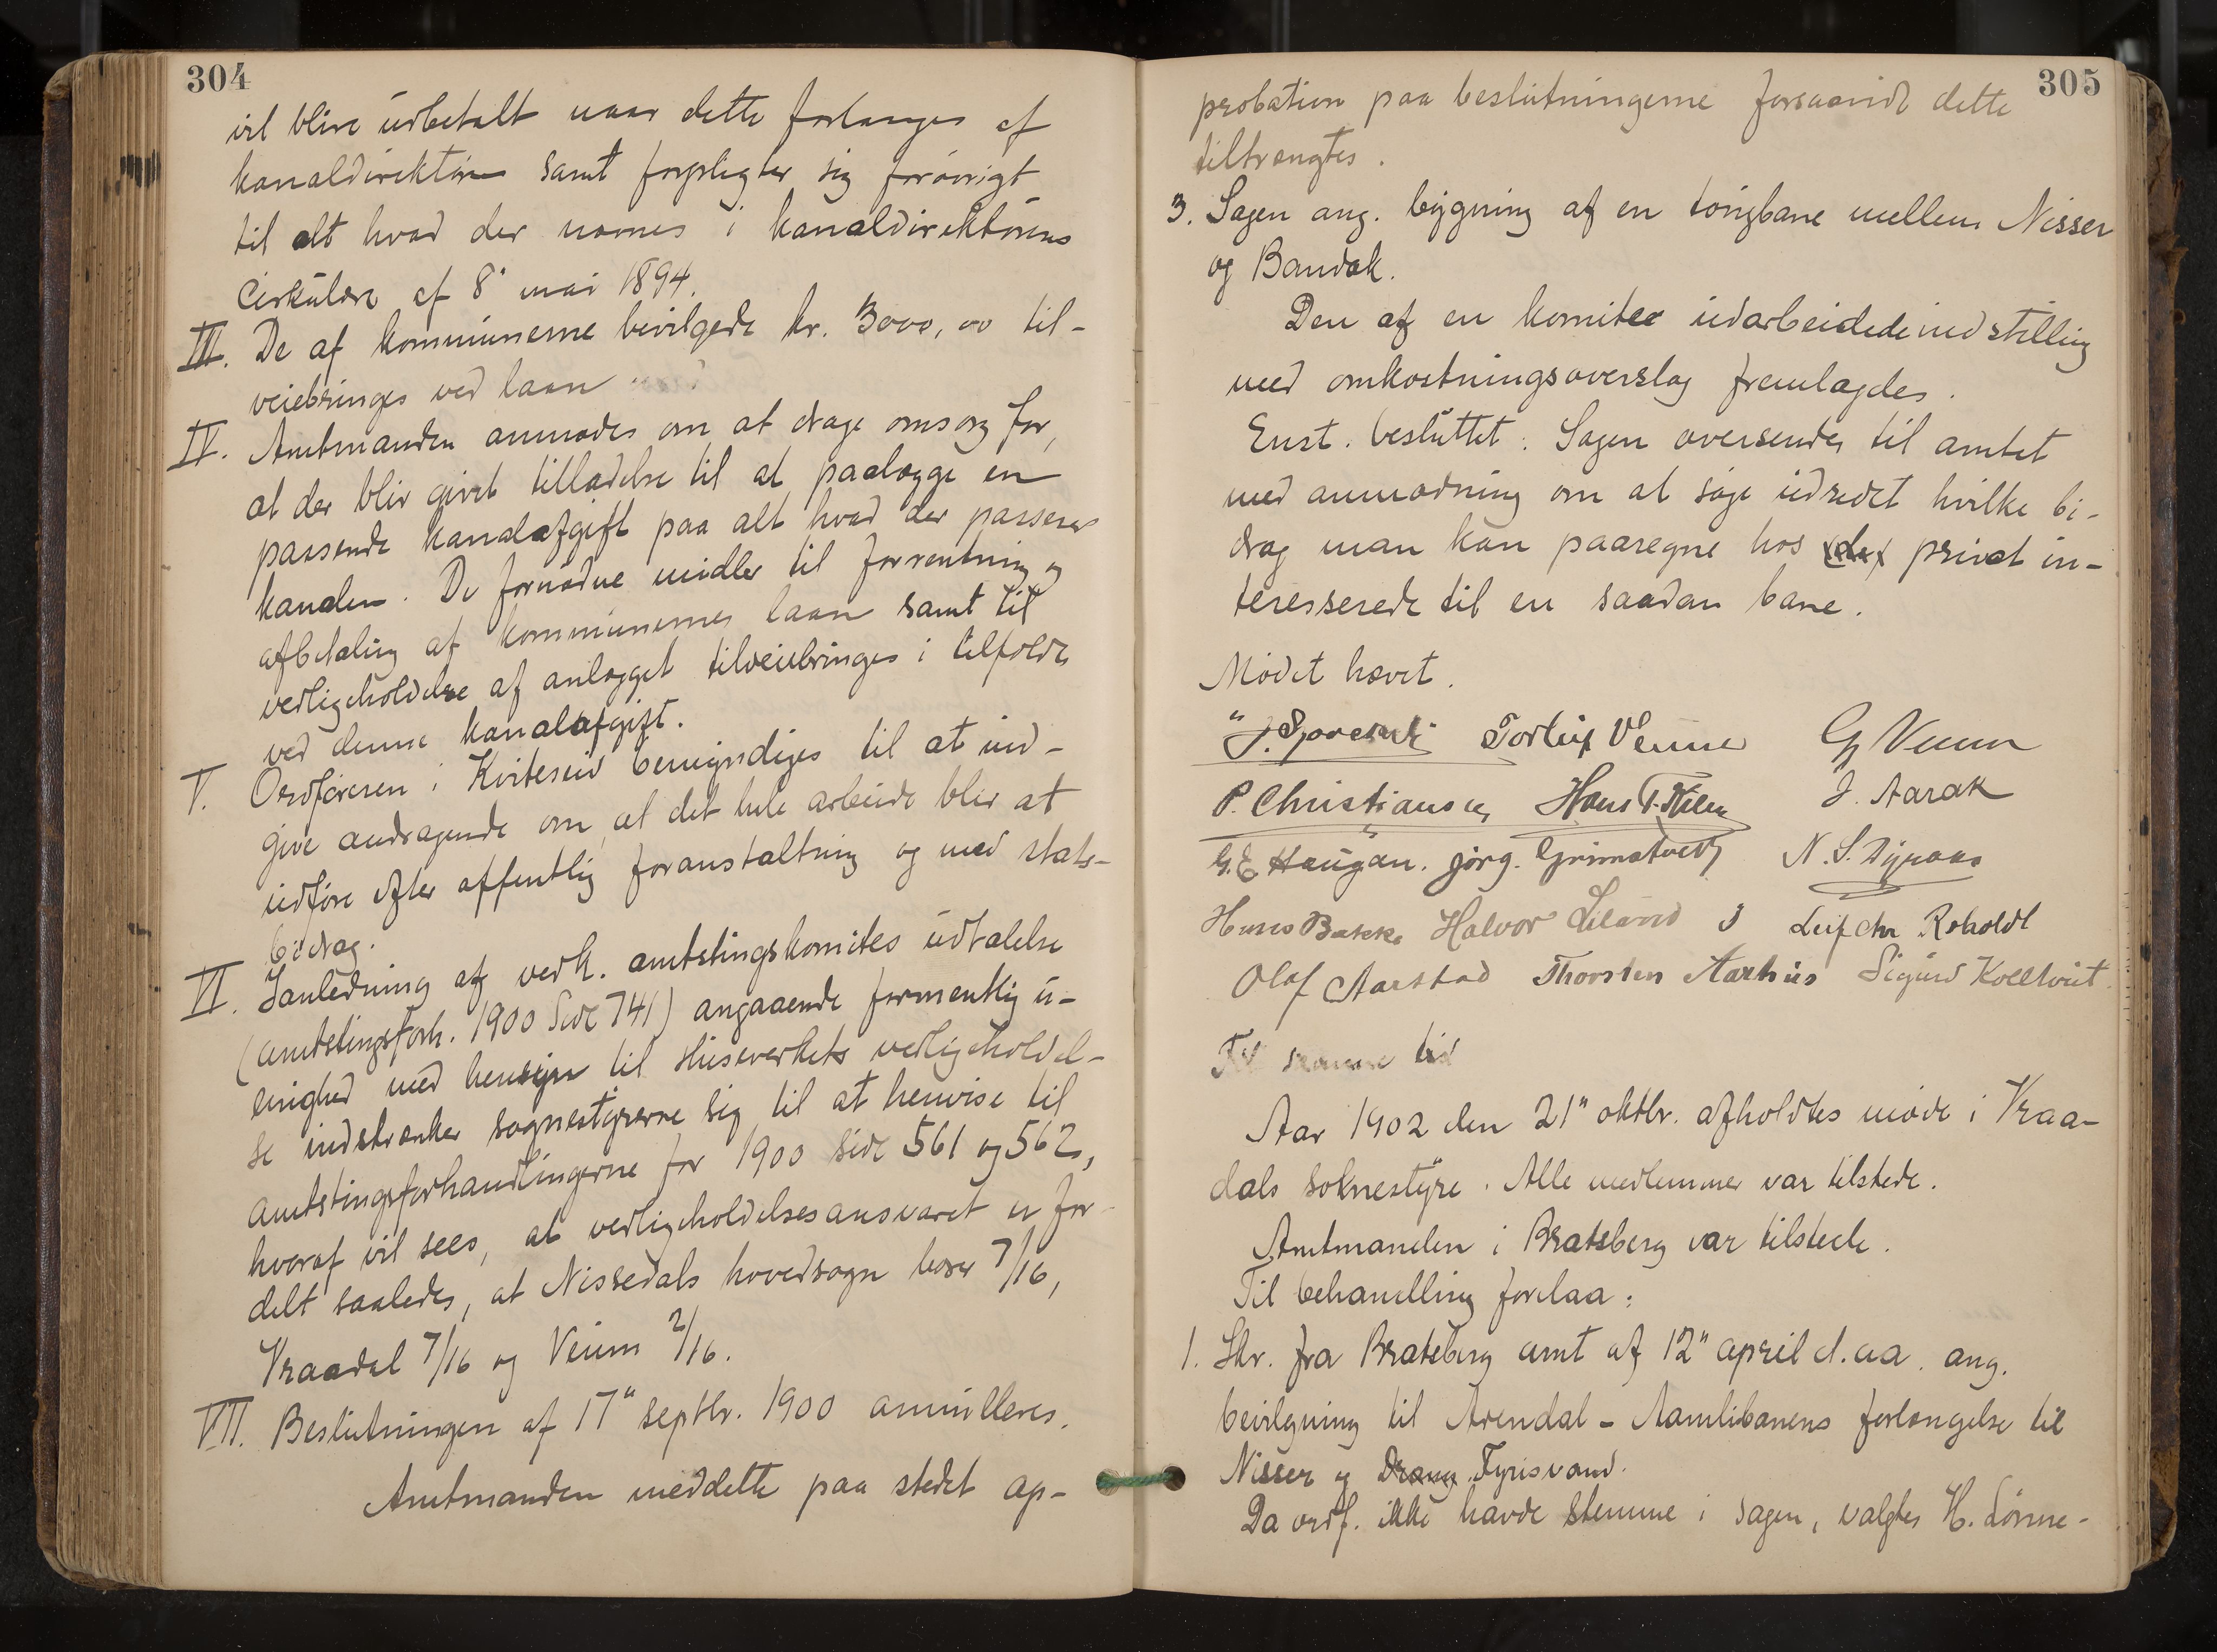 304
vil blive udbetalt naar dette forlanges af
kanaldirektøren samt forpligter sig forøvrigt
til alt hvad der nævnes i kanaldirektørens
Cirkulære af 8' mai 1894.
III. De af kommunerne bevilgede kr. 3000,00 til-
veiebringes ved laan
IV. Amtmanden anmodes om at drage omsorg for,
at der blir givet tilladelse til at paalægge en
passende kanalafgift paa alt hvad der passerer
kanalen. De fornødne midler til forrentning og
afbetaling af kommunernes laan samt til
vedligeholdelse af anlægget tilveiebringes i tilfælde
ved denne kanalafgift.
V. Ordføreren i Kviteseid bemyndiges til at ind-
give andragende om, at det hele arbeide blir at
udføre efter offentlig foranstaltning og med stats-
bidrag.
VI. I anledning af vedk. amtstingskomites udtalelse
(amtstingsforh. 1900 Side 741) angaaende formentlig u-
enighed med hensyn til sluseverkets vedligeholdel-
se indskrænker sognestyrerne sig til at henvise til
amtstingsforhandlingerne for 1900 side 561 og 562,
hvoraf vil sees, at vedligeholdelsesansvaret er for-
delt saaledes, at Nissedals hovedsogn bærer 7/16,
Vraadal 7/16 og Veum 2/16.
VII. Beslutningen af 17" septbr. 1900 annulleres.
Amtmanden meddelte paa stedet ap-
305
probation paa beslutningerne forsaavidt dette
tiltrængtes.
3. Sagen ang. bygning af en tougbane mellem Nisser
og Bandak.
Den af en komitee udarbeidede indstilling
med omkostningsoverslag fremlagdes.
Enst. besluttet: Sagen oversendes til amtet
med anmodning om at søge udredet hvilke bi-
drag man kan paaregne hos (de) privat in-
teresserede til en saadan bane.
Mødet hævet.
Torleif Venne G Veum
P. Christiansen Hans T. J. Aarak
G. E. Haugan. Jørg. Grimstvedt N. S.
Hans Bakke Halvor Leif Chr Roholdt
Olof Aarstad Thorsten Aarhus Sigurd Kvelhvit
Til samme tid
Aar 1902 den 21" oktbr. afholdtes møde i Vraa-
dals soknestyre. Alle medlemmer var tilstede.
Amtmanden i Bratsberg var tilstede.
Til behandling forelaa:
1. Skr. fra Bratsberg amt af 12" april d.aa. ang.
bevilgning til Arendal - Aamlibanens forlængelse til
Nisser og Drang Fyrisvand.
Da ordf. ikke havde stemme i sagen, valgtes H. Lønne-